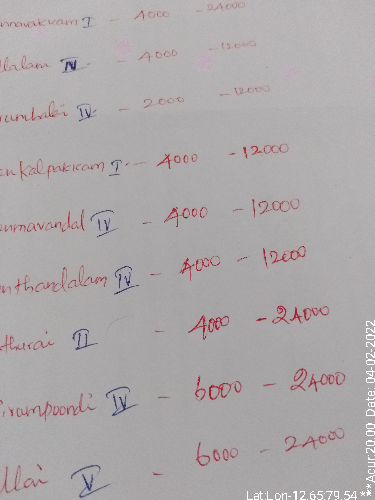 nmavakkam I - 4000 - 24000
llalam IV - 4000 - 12000
rumbakki IV - 2000 - 12000
enkalpakkam I - 4000 - 12000
unmavandal IV - 4000 - 12000
nthandalam IV - 4000 - 12000
thurai II - 4000 - 24000
irumpoondi IV - 6000 - 24000
llai V - 6000 - 24000
Lat:Lon-12.6579,54 ***Acur:20.00 Date: 04-02-2022